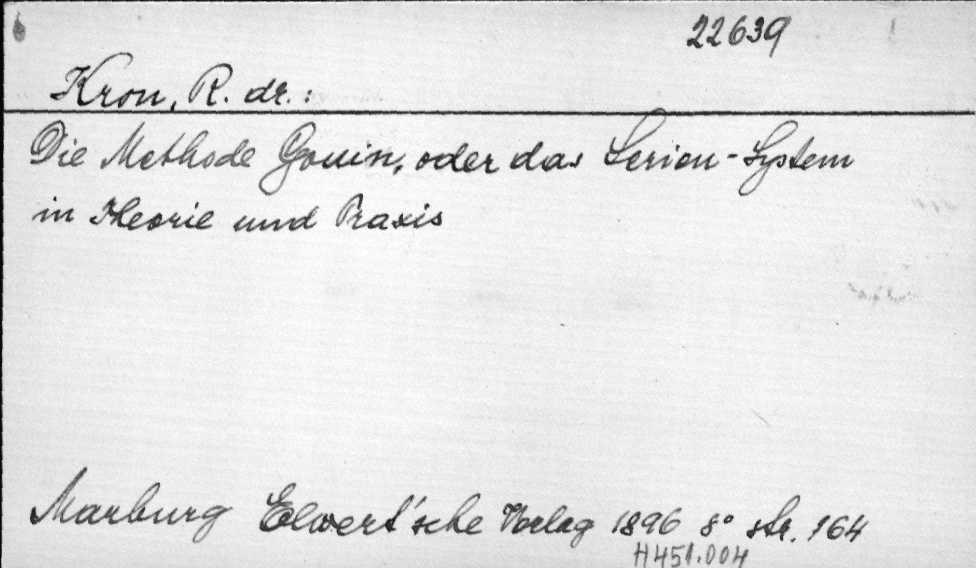 22639
Kron, R. dr.:
Die Methode Gouin, oder das Serien-System
in Theorie und Praxis
Marburg Elwert'sche Verlag 1896 8° str. 164
H451.004